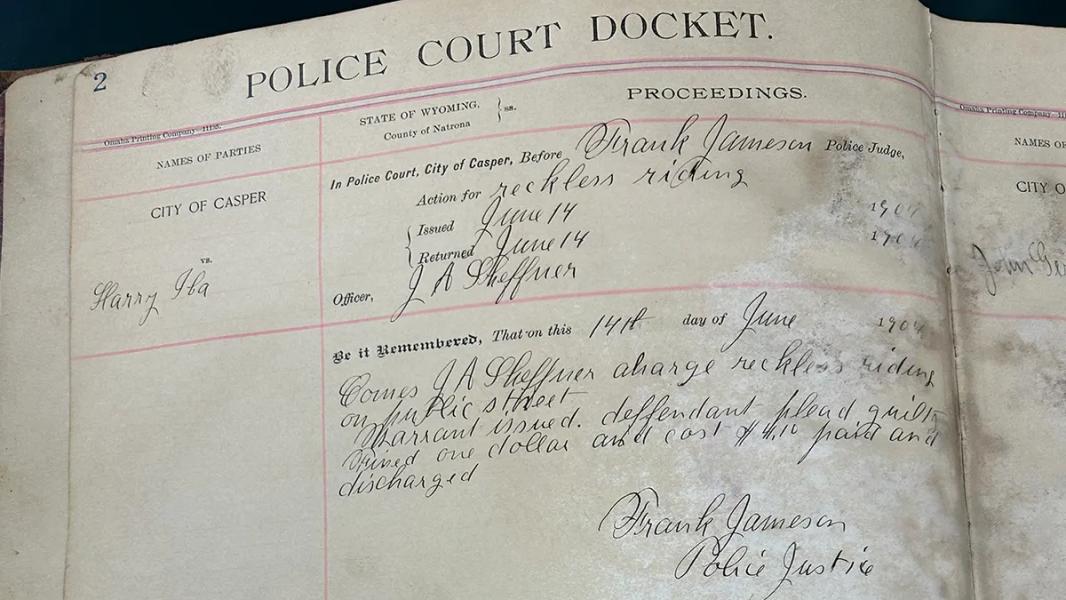 2
POLICE COURT DOCKET.
Omaha Printing Company
NAMES OF PARTIES
STATE OF WYOMING,
County of Natrona
ss.
PROCEEDINGS.
CITY OF CASPER
vs.
Harry Iba
In Police Court, City of Casper, Before Frank Jameson Police Judge,
Action for reckless riding
Issued June 14 190
Returned June 14 190
Officer, J A Sheffner
Be it Remembered, That on this 14th day of June 190
Comes J A Sheffner charge reckless riding
on public street
Warrant issued. deffendant plead guilty
Fined one dollar and cost paid and
discharged
Frank Jameson
Police Justice
Omaha Printing Company
NAMES OF
CITY O
John